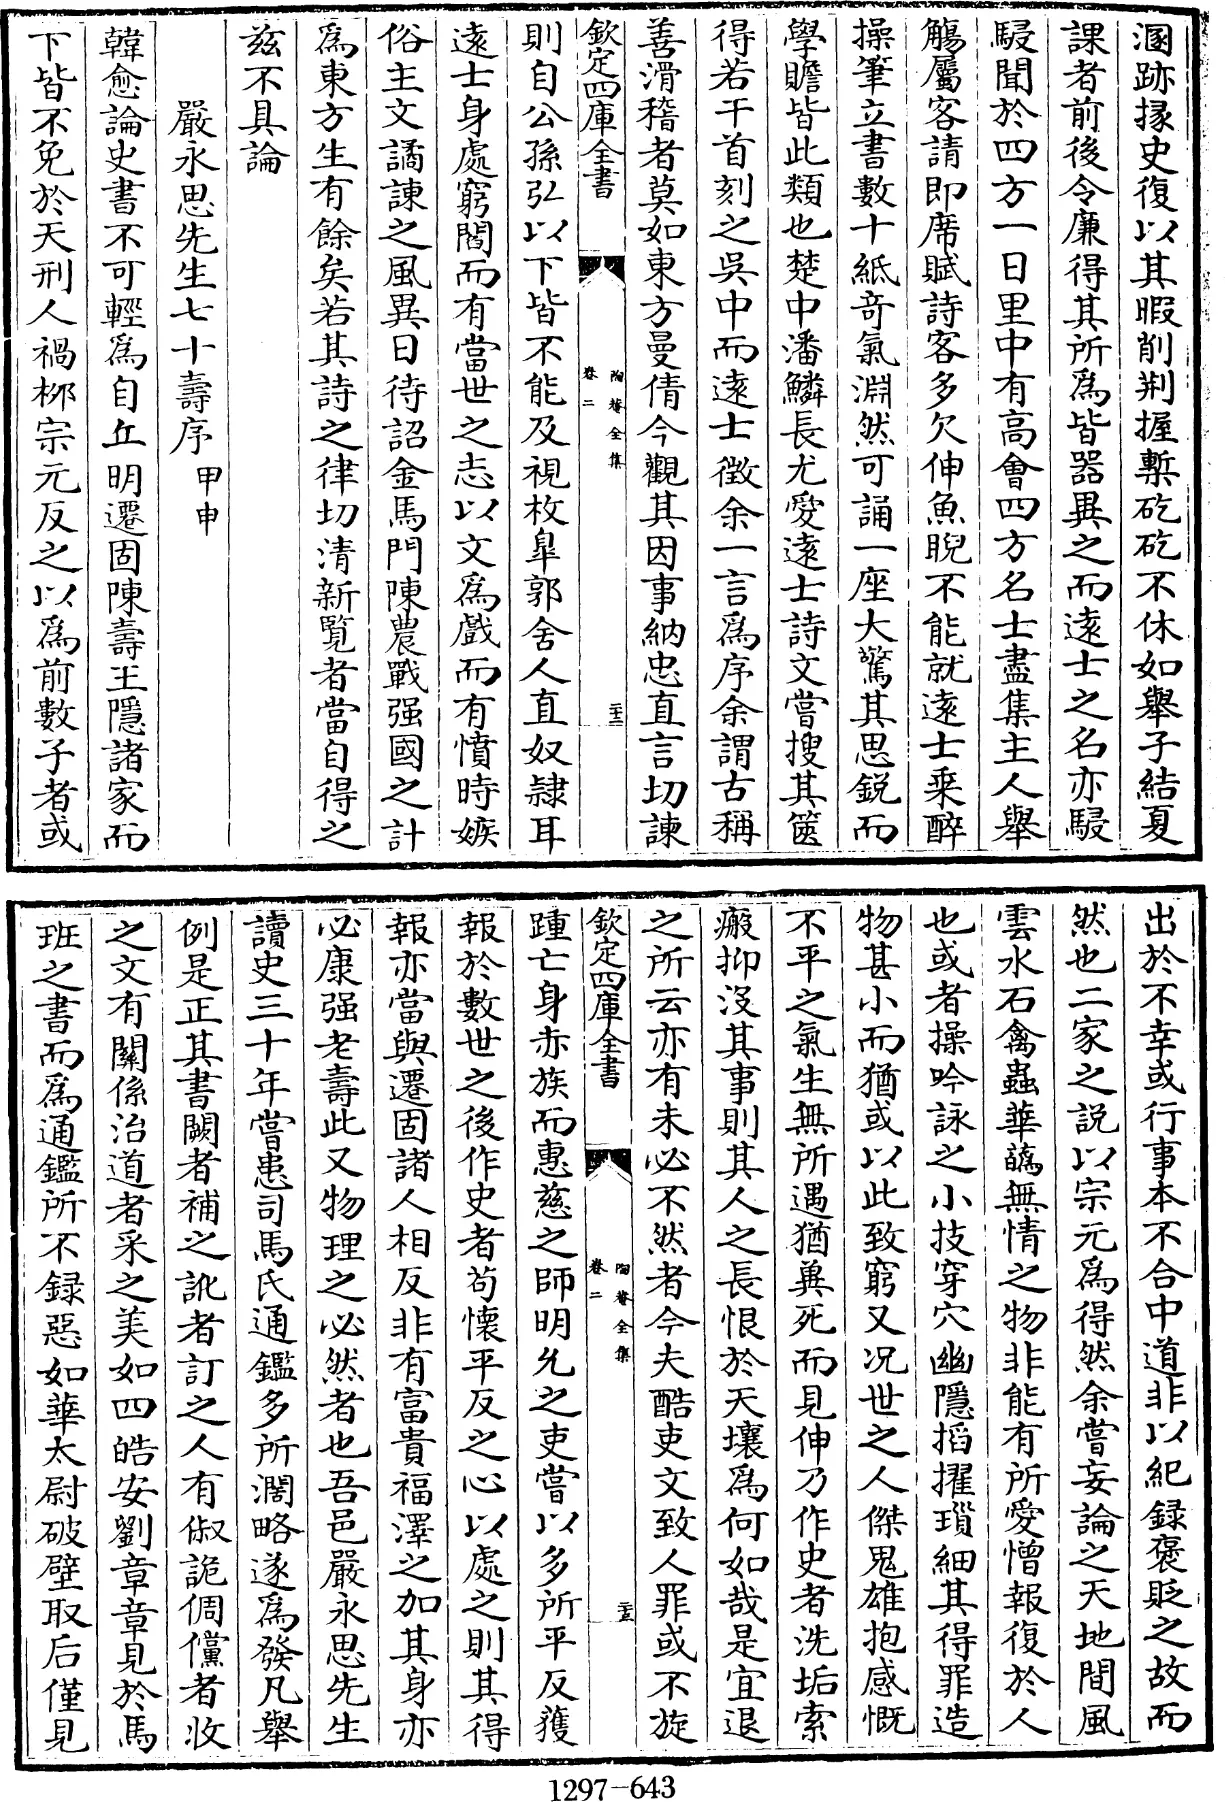 溷跡掾史復以其暇削荆握槧矻矻不休如舉子結夏
課者前後令廉得其所為皆器異之而遠士之名亦駸
駸聞於四方一日里中有高會四方名士盡集主人舉
觴屬客請即席賦詩客多欠伸魚睨不能就遠士乗醉
操筆立書數十紙竒氣淵然可誦一座大驚其思鋭而
學贍皆此類也楚中潘鱗長尤愛遠士詩文嘗搜其篋
得若干首刻之吳中而遠士徴余一言為序余謂古稱
善滑稽者莫如東方曼倩今觀其因事納忠直言切諫
欽定四庫全書
陶菴全集
卷二
二十二
則自公孫弘以下皆不能及視枚臯郭舍人直奴隷耳
遠士身處窮閻而有當世之志以文為戲而有憤時嫉
俗主文譎諫之風異日待詔金馬門陳農戰强國之計
為東方生有餘矣若其詩之律切清新覽者當自得之
兹不具論
嚴永思先生七十壽序甲申
韓愈論史書不可輕為自丘明遷固陳壽王隱諸家而
下皆不免於天刑人禍栁宗元反之以為前數子者或
出於不幸或行事本不合中道非以紀録褒貶之故而
然也二家之説以宗元為得然余嘗妄論之天地間風
雲水石禽蟲華蘤無情之物非能有所愛憎報復於人
也或者操吟詠之小技穿穴幽隱搯擢瑣細其得罪造
物甚小而猶或以此致窮又况世之人傑鬼雄抱感慨
不平之氣生無所遇猶冀死而見伸乃作史者洗垢索
瘢抑沒其事則其人之長恨於天壤為何如哉是宜退
之所云亦有未必不然者今夫酷吏文致人罪或不旋
欽定四庫全書
陶菴全集
卷二
二十三
踵亡身赤族而惠慈之師明允之吏嘗以多所平反獲
報於數世之後作史者苟懷平反之心以處之則其得
報亦當與遷固諸人相反非有富貴福澤之加其身亦
必康强老壽此又物理之必然者也吾邑嚴永思先生
讀史三十年嘗患司馬氏通鑑多所濶略遂為發凡舉
例是正其書闕者補之訛者訂之人有俶詭倜儻者收
之文有關係治道者采之美如四皓安劉章章見於馬
班之書而為通鑑所不録惡如華太尉破壁取后僅見
1297-643